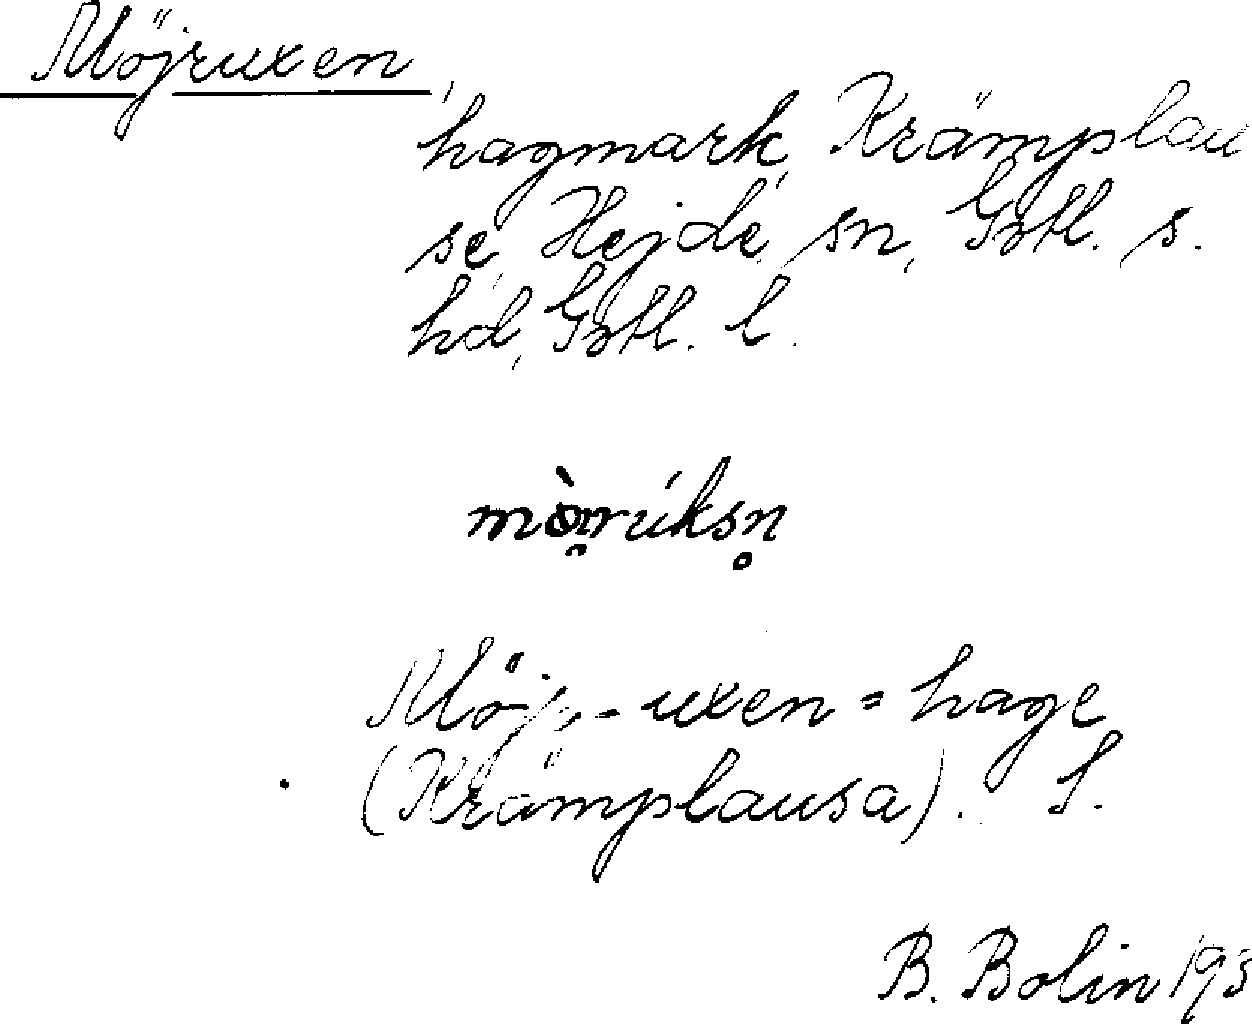 Möjruxen,
hagmark, Krämplau
se, Hejde sn, Gotl. s.
hd, Gotl. l.
Möj, - uxen = hage
(Krämplausa). S.
B. Bolin 193